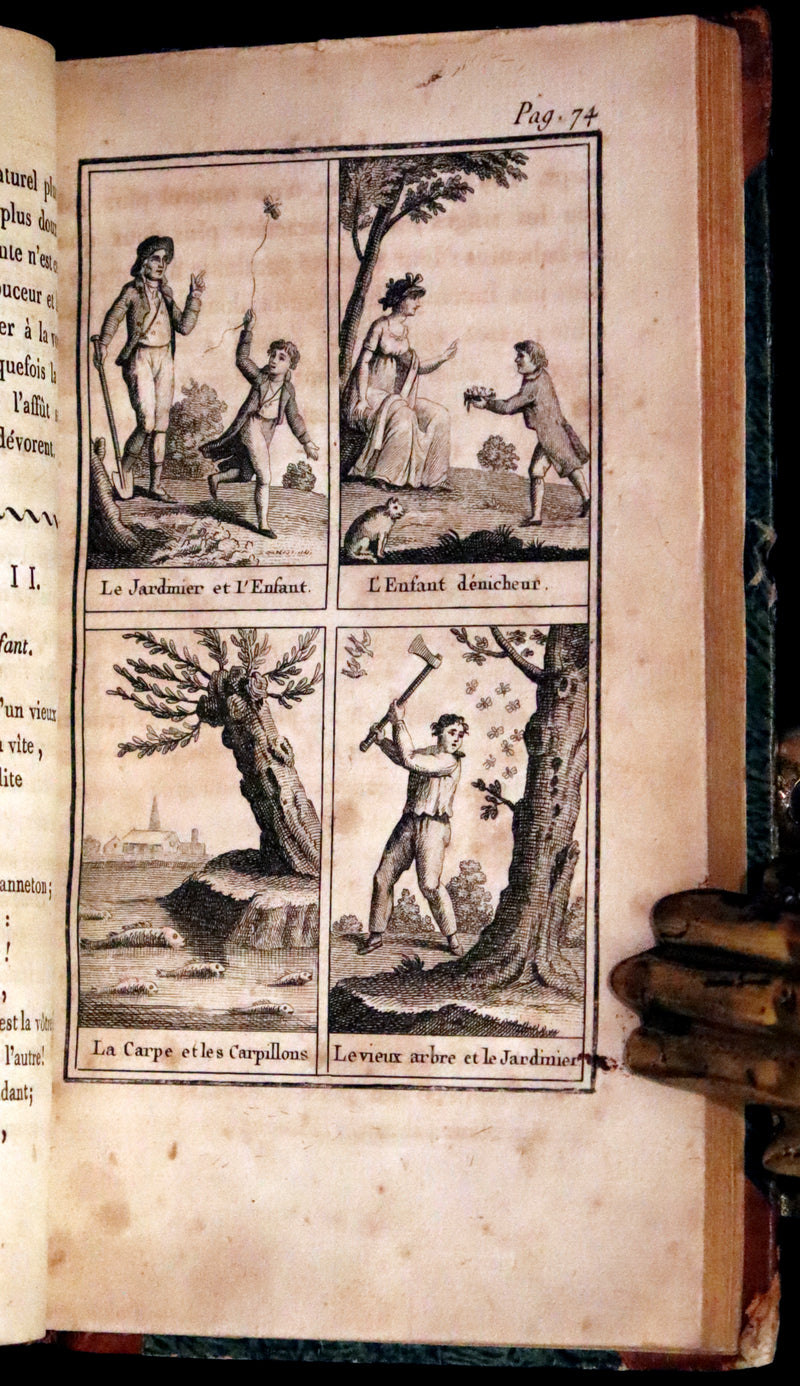 plus dou
n'est
ouceur et
er à la
quefois
l'affût
dévorent.
II.
fant.
'un vieux
vîte,
lite
anneton;
:
!
,
est la vôtre
l'autre!
dant;
,
Pag. 74
Le Jardinier et l'Enfant.
L'Enfant dénicheur.
La Carpe et les Carpillons
Le vieux arbre et le Jardinier